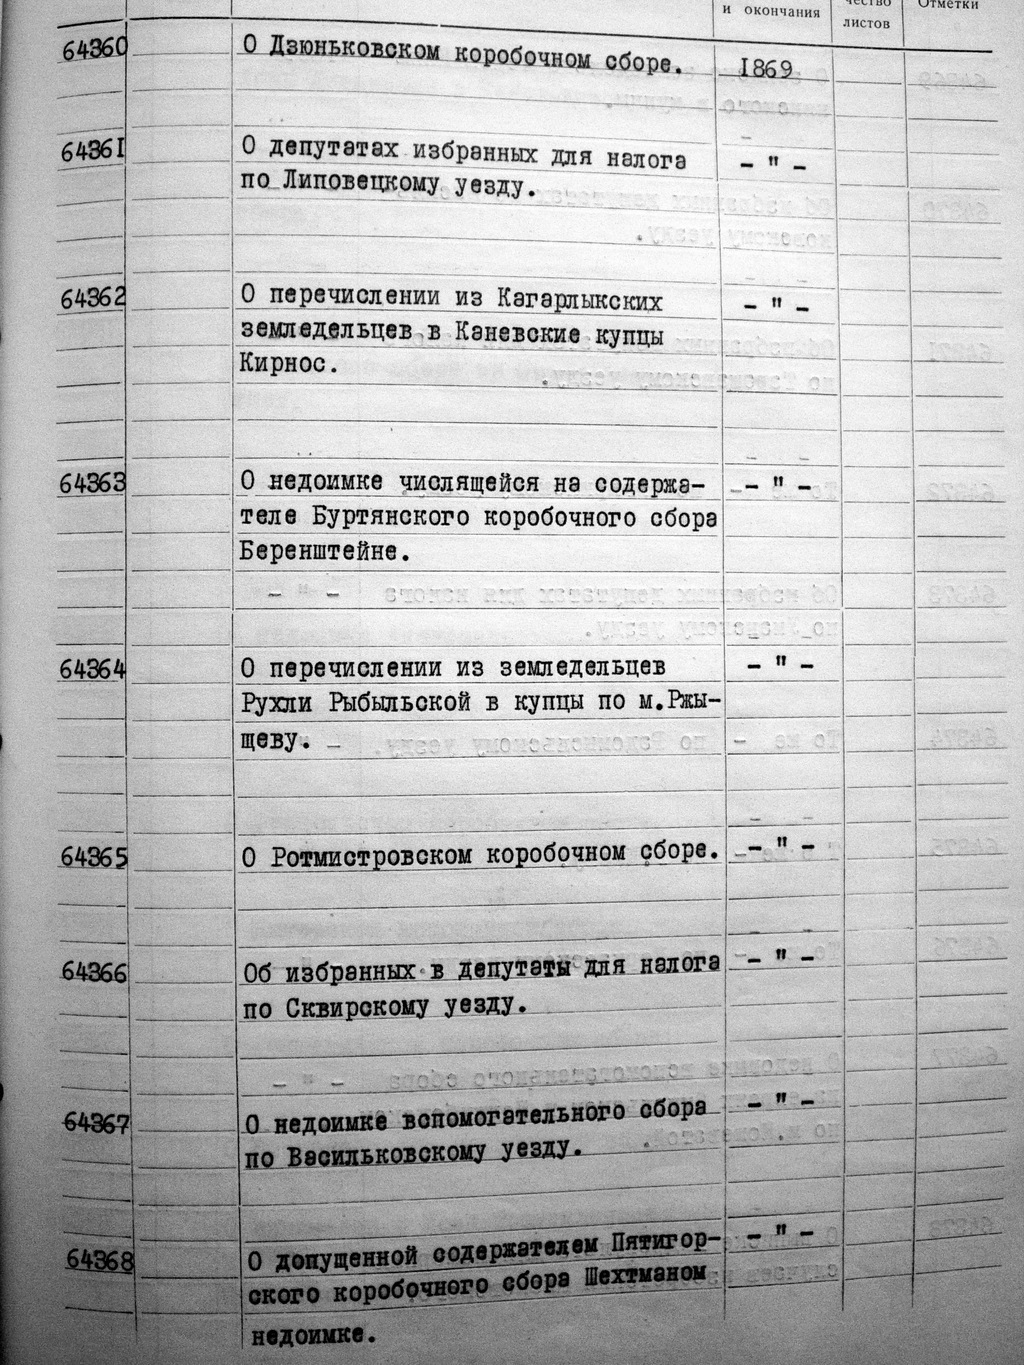 и окончания
чество
листов
Отметки
64360 О Дзюньковском коробочном сборе. 1869
64361 О депутатах избранных для налога - " -
по Липовецкому уезду.
64362 О перечислении из Кагарлыкских - " -
земледельцев в Каневские купцы
Кирнос.
64363 О недоимке числящейся на содержа- - " -
теле Буртянского коробочного сбора
Беренштейне.
64364 О перечислении из земледельцев - " -
Рухли Рыбыльской в купцы по м.Ржы-
щеву.
64365 О Ротмистровском коробочном сборе. - " -
64366 Об избранных в депутаты для налога - " -
по Сквирскому уезду.
64367 О недоимке вспомогательного сбора - " -
по Васильковскому уезду.
64368 О допущенной содержателем Пятигор- - " -
ского коробочного сбора Шехтманом
недоимке.